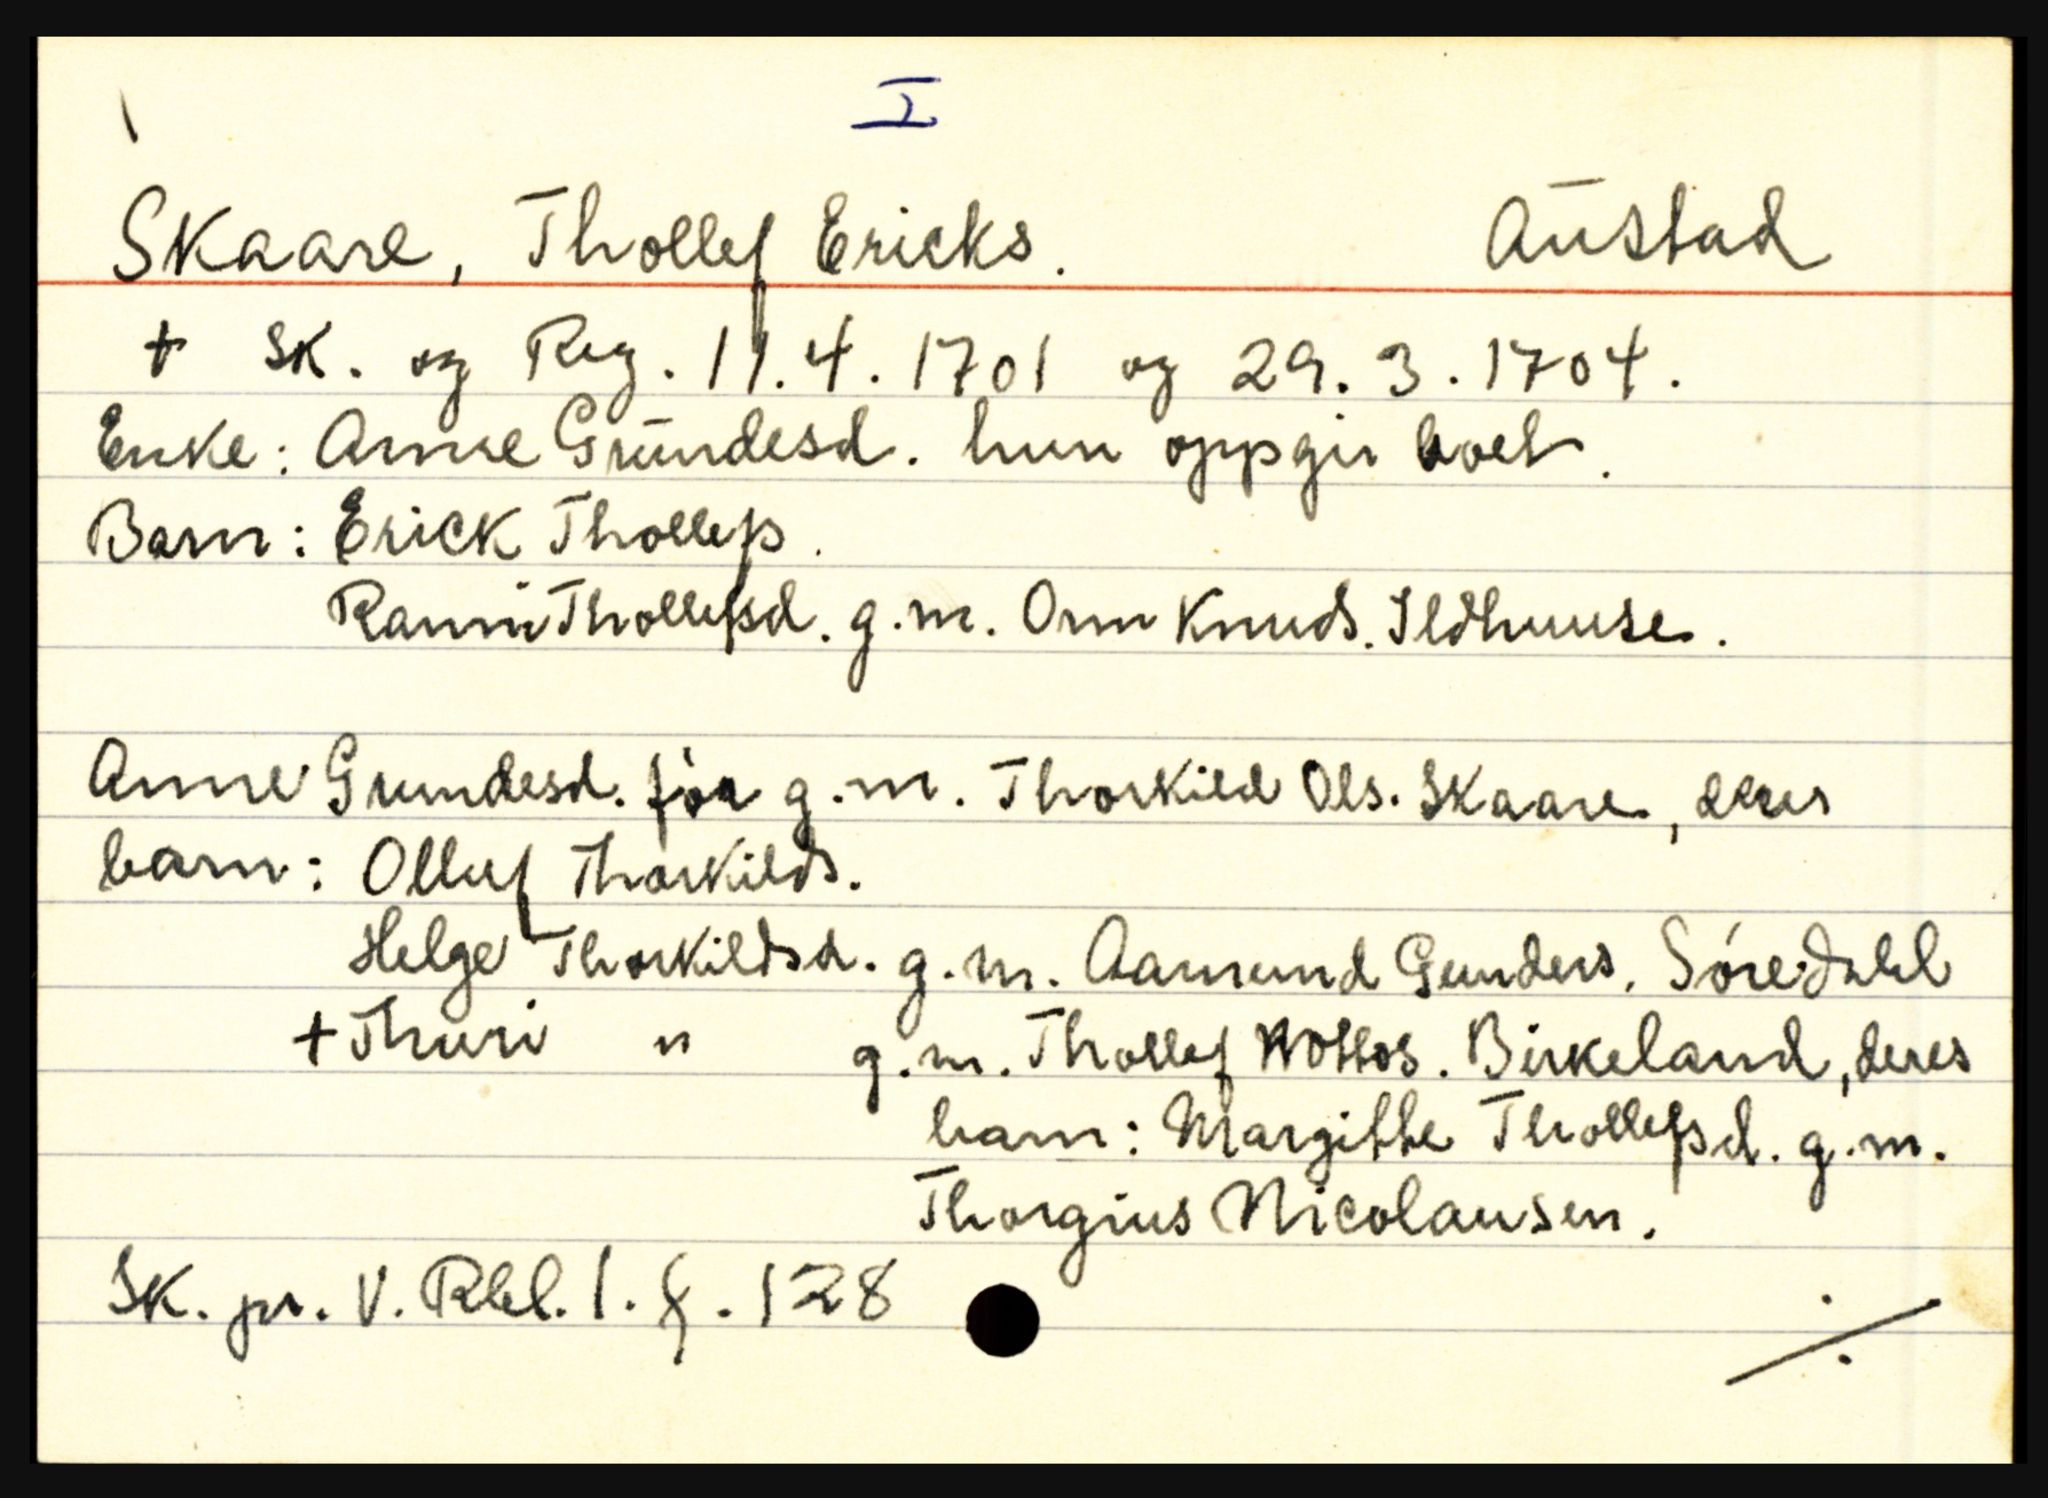 I
Skaare, Thollef Ericks. Austad
+ Sk. og Reg. 11.4.1701 og 29.3.1704.
Enke: Anne Grundesd. hun oppgir boet.
Barn: Erick Thollefs.
Ranni Thollefsd. g.m. Onn Knuds. Ildhuuse.
Anne Grundesd. før g.m. Thorkild Ols. Skaare, deres
barn: Olluf Thorkilds.
Helge Thorkildsd. g.m. Aamund Gunders. Søredahl
+ Thuri " g.m. Thollef Ottos. Birkeland, deres
barn: Margitte Thollefsd. g.m.
Thorgius Nicolausen.
Sk. pr. V. Rbl. 1. f. 128